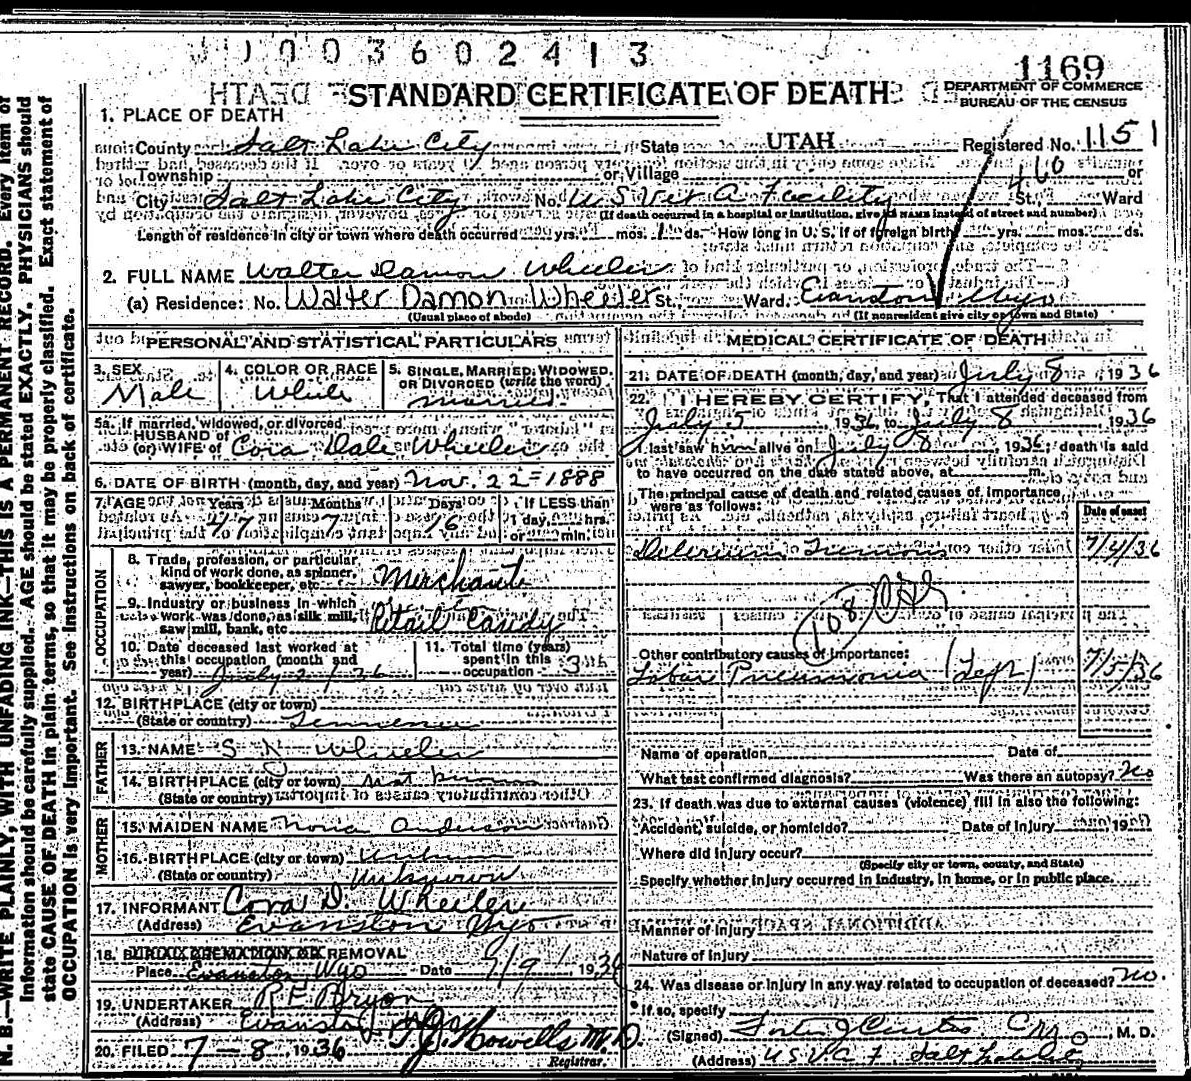 1003602413
1169
STANDARD CERTIFICATE OF DEATH
DEPARTMENT OF COMMERCE
BUREAU OF THE CENSUS
1. PLACE OF DEATH
County Salt Lake City State UTAH Registered No. 1151
Township or Village or
460
City Salt Lake City No. U S Vet A Facility St., Ward
(If death occurred in a hospital or institution, give its NAME instead of street and number)
Length of residence in city or town where death occurred yrs. mos. 1 ds. How long in U. S. if of foreign birth yrs. mos. ds.
2. FULL NAME Walter Damon Wheeler
(a) Residence: No. Walter Damon Wheeler St., Ward. Evanston Wyo
(Usual place of abode) (If nonresident give city or town and State)
PERSONAL AND STATISTICAL PARTICULARS
3. SEX Male
4. COLOR OR RACE White
5. SINGLE, MARRIED, WIDOWED,
OR DIVORCED (write the word)
married
5a. If married, widowed, or divorced
HUSBAND of
(or) WIFE of Cora Dale Wheeler
6. DATE OF BIRTH (month, day, and year) Nov. 22 - 1888
7. AGE Years 47 Months 7 Days 16 If LESS than
1 day, hrs.
or min.
OCCUPATION
8. Trade, profession, or particular
kind of work done, as spinner,
sawyer, bookkeeper, etc. Merchant
9. Industry or business in which
work was done, as silk mill,
saw mill, bank, etc. Retail Candy
10. Date deceased last worked at
this occupation (month and
year) July 2 / 36
11. Total time (years)
spent in this
occupation 3
12. BIRTHPLACE (city or town)
(State or country) Tennessee
FATHER
13. NAME S N Wheeler
14. BIRTHPLACE (city or town) Not known
(State or country)
MOTHER
15. MAIDEN NAME Nora Anderson
16. BIRTHPLACE (city or town) Unknown
(State or country) Unknown
17. INFORMANT Cora D. Wheeler
(Address) Evanston Wyo
18. BURIAL CREMATION OR REMOVAL
Place Evanston Wyo Date 7/9/ 1936
19. UNDERTAKER R E Bryon
(Address) Evanston
20. FILED 7 - 8, 1936 Howells M.D.
Registrar.
MEDICAL CERTIFICATE OF DEATH
21. DATE OF DEATH (month, day, and year) July 8, 1936
22. I HEREBY CERTIFY, That I attended deceased from
July 5, 1936, to July 8, 1936
I last saw him alive on July 8, 1936; death is said
to have occurred on the date stated above, at
The principal cause of death and related causes of importance
were as follows:
Date of onset
Delerium Tremons 7/4/36
108
Other contributory causes of importance:
Lobar Pneumonia (Left) 7/5/36
Name of operation Date of
What test confirmed diagnosis? Was there an autopsy? No
23. If death was due to external causes (violence) fill in also the following:
Accident, suicide, or homicide? Date of injury 19
Where did injury occur?
(Specify city or town, county, and State)
Specify whether injury occurred in industry, in home, or in public place.
Manner of injury
Nature of injury
24. Was disease or injury in any way related to occupation of deceased? No.
If so, specify
(Signed) Curtis, M. D.
(Address) U S V A F. Salt Lake
N. B.—WRITE PLAINLY, WITH UNFADING INK—THIS IS A PERMANENT RECORD. Every item of
information should be carefully supplied. AGE should be stated EXACTLY. PHYSICIANS should
state CAUSE OF DEATH in plain terms, so that it may be properly classified. Exact statement of
OCCUPATION is very important. See instructions on back of certificate.